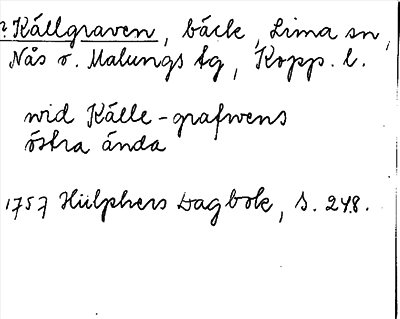 ? Källgraven, bäck, Lima sn,
Nås o. Malungs tg, Kopp. l.
wid Källe-grafwens
östra ända
1757 Hülphers Dagbok, s. 248.